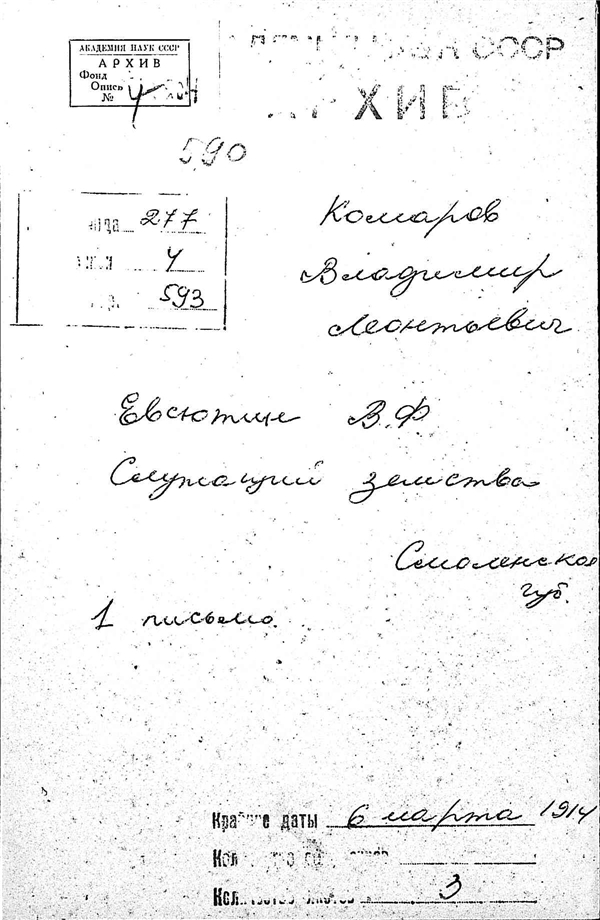 АКАДЕМИЯ НАУК СССР
АРХИВ
Фонд
Опись
№ 4
СССР
АРХИВ
590
277
4
593
Комаров
Владимир
Леонтьевич
Евсютин В.Ф
Служащий земства
Смоленская
губ.
1 письмо.
Крайние даты 6 марта 1914
Количество листов 3